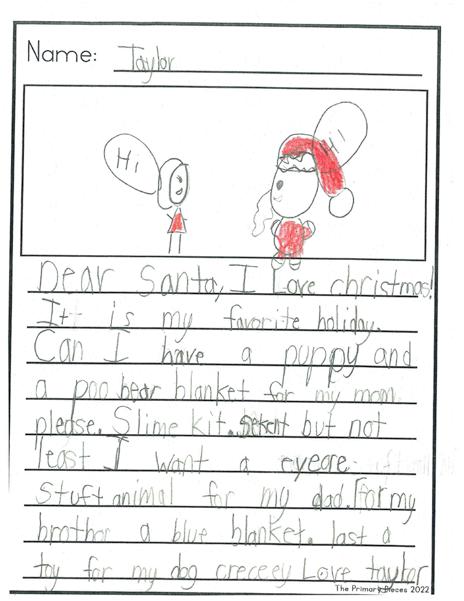 Name: Taylor
Hi
Hi
Dear Santa, I Love christmas!
It is my favorite holiday.
Can I have a puppy and
a poo bear blanket for my mom
please. Slime kit. but not
least I want a eyeore
stuft animal for my dad. For my
brothar a blue blanket. last a
toy for my dog creceey Love taylor
The Primary Pieces 2022